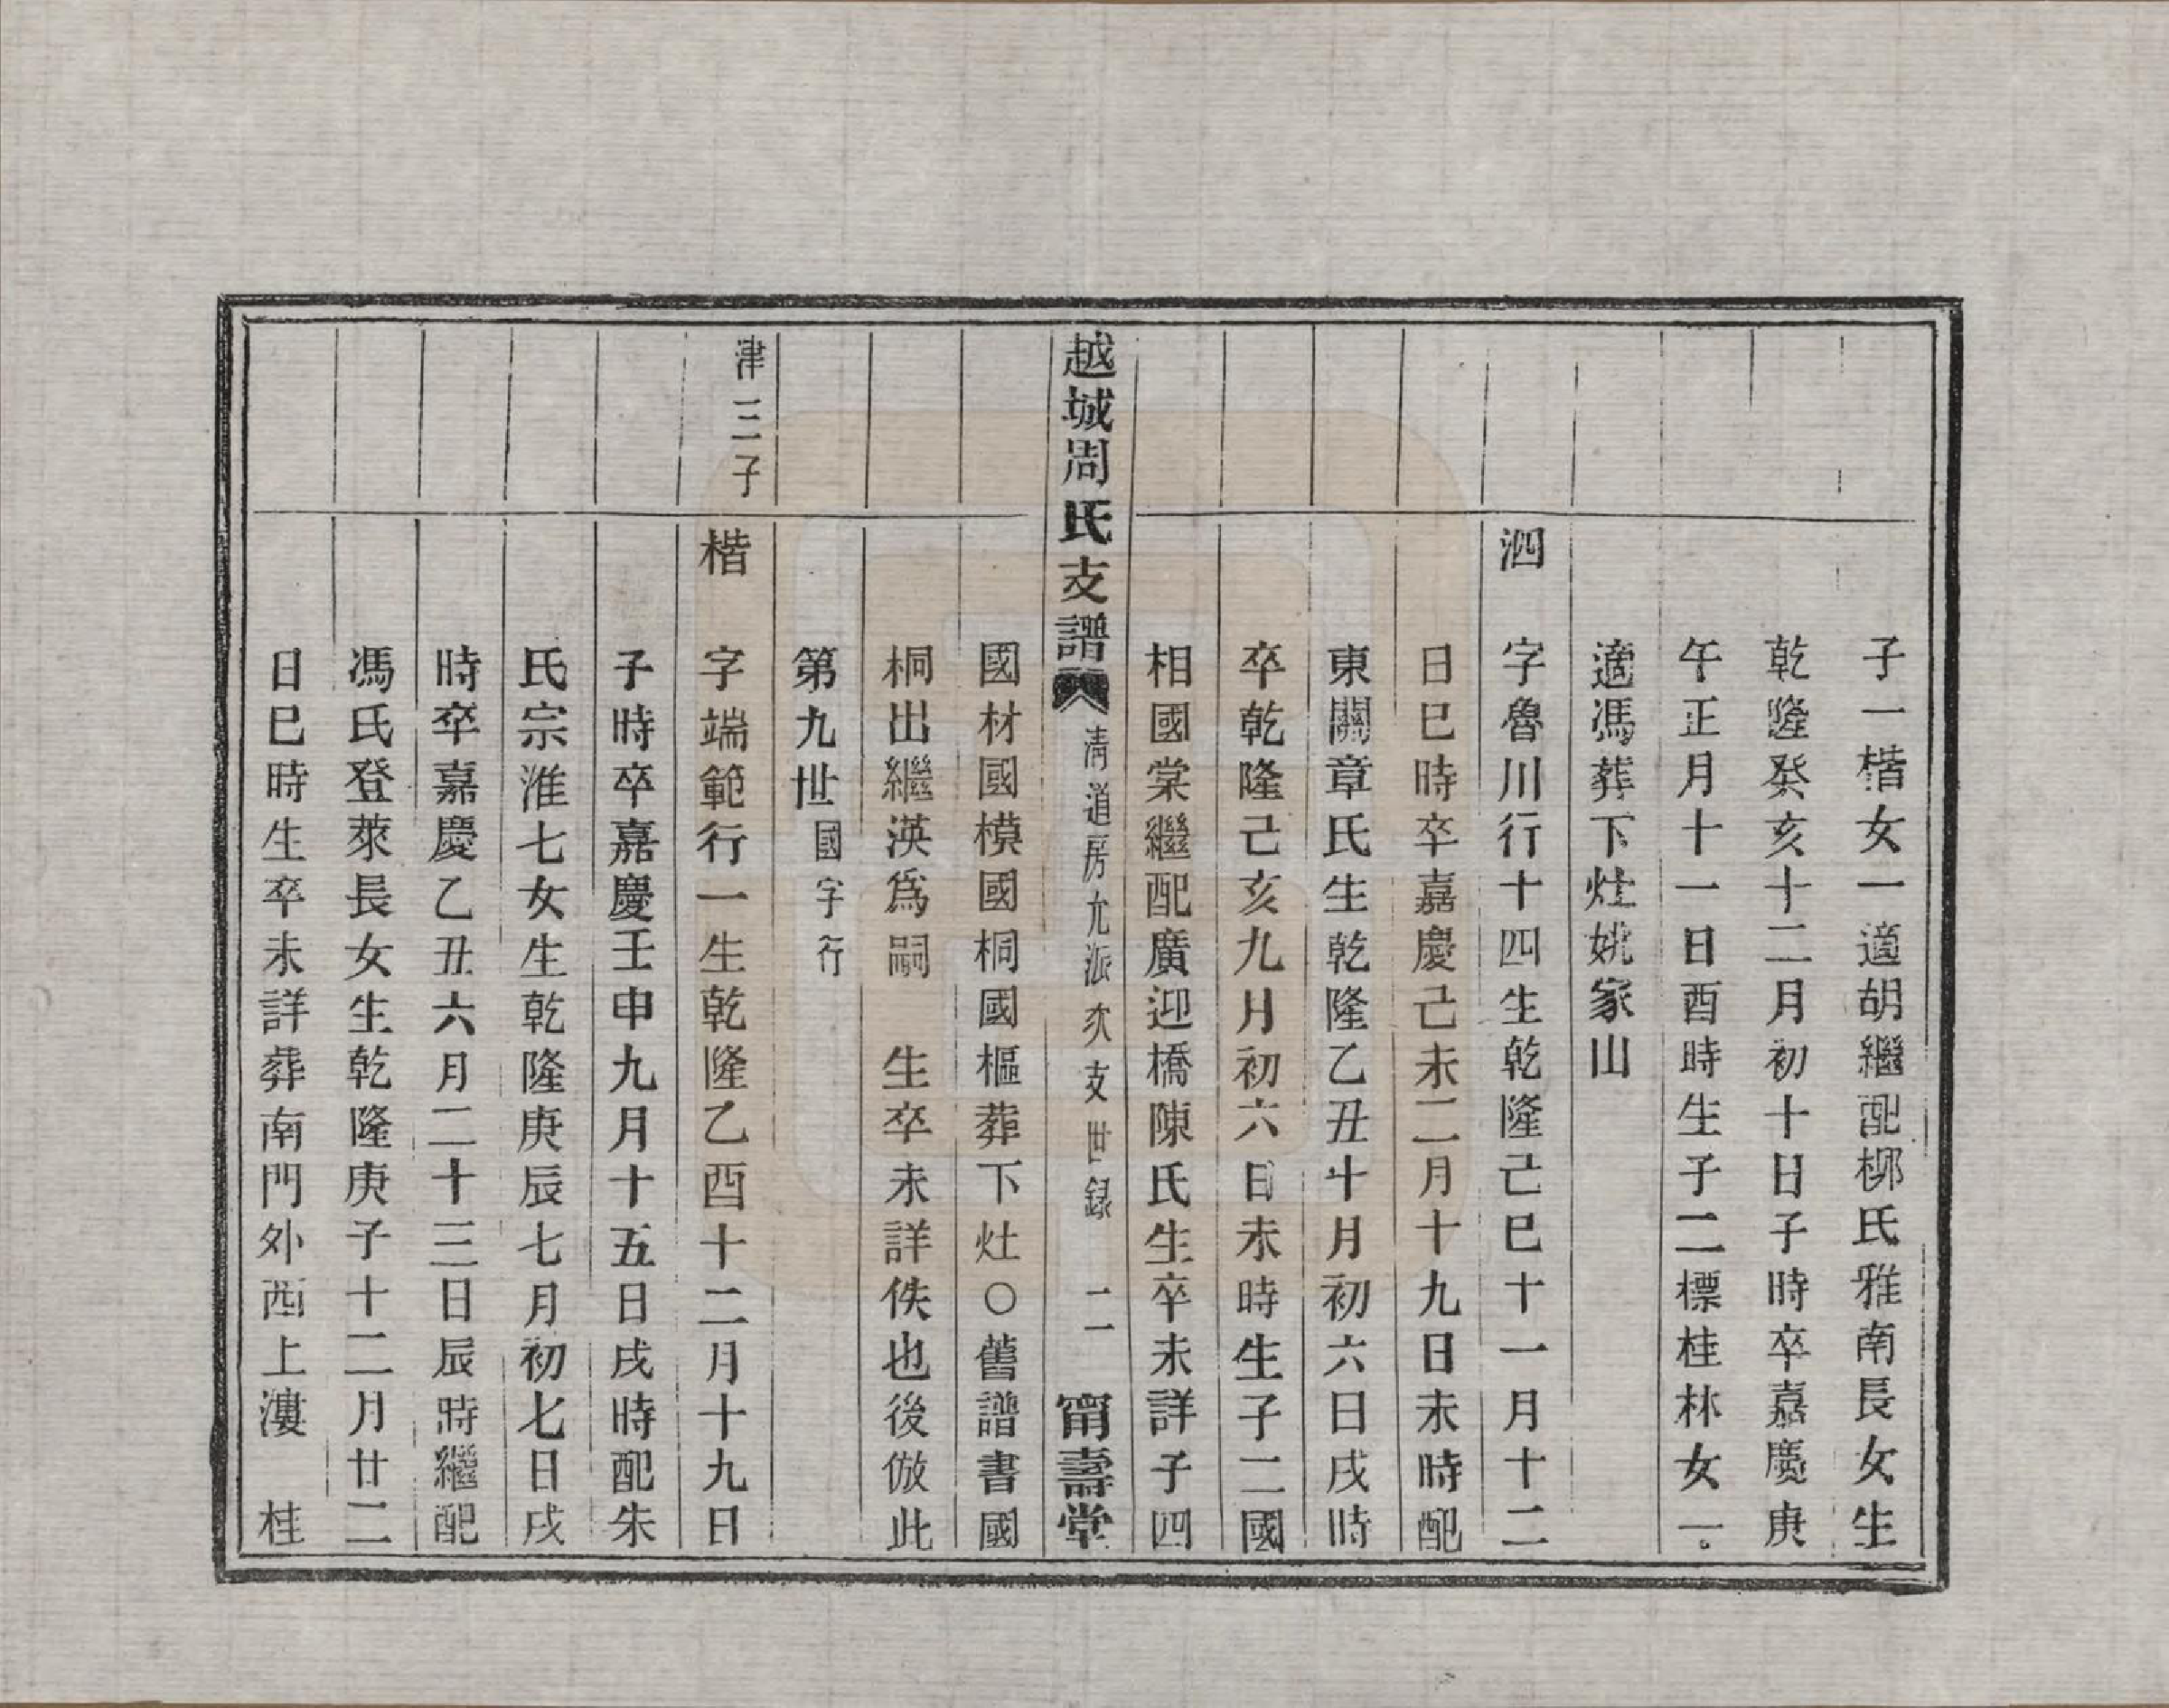 子一楷女一適胡繼配柳氏雅南長女生
乾隆癸亥十二月初十日子時卒嘉慶庚
午正月十一日酉時生子二標桂林女一
適馮葬下灶姚家山
泗 字魯川行十四生乾隆己巳十一月十二
日巳時卒嘉慶己未二月十九日未時配
東關章氏生乾隆乙丑十月初六日戌時
卒乾隆己亥九月初六日未時生子二國
相國棠繼配廣迎橋陳氏生卒未詳子四
越城周氏支譜 清道房允派次支世錄 二 甯壽堂
國材國模國桐國樞葬下灶○舊譜書國
桐出繼渶爲嗣 生卒未詳佚也後倣此
第九世 國字行
津三子
楷 字端範行一生乾隆乙酉十二月十九日
子時卒嘉慶壬申九月十五日戌時配朱
氏宗淮七女生乾隆庚辰七月初七日戌
時卒嘉慶乙丑六月二十三日辰時繼配
馮氏登萊長女生乾隆庚子十二月廿二
日巳時生卒未詳葬南門外西上漊 桂